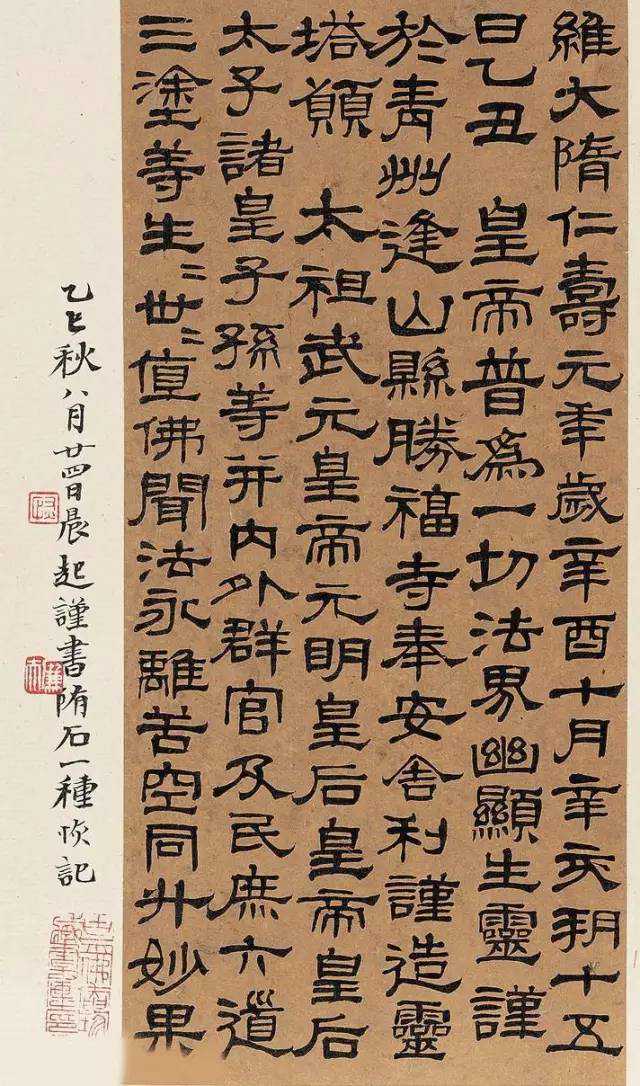 維大隋仁壽元年歲辛酉十月辛亥朔十五
日乙丑 皇帝普爲一切法界幽顯生靈謹
於青州逢山縣勝福寺奉安舍利謹造靈
塔願 太祖武元皇帝元明皇后皇帝皇后
太子諸皇子孫等并內外群官及民庶六道
三塗等生〻世〻值佛聞法永離苦空同升妙果
乙巳秋八月廿四日晨起謹書隋石一種記